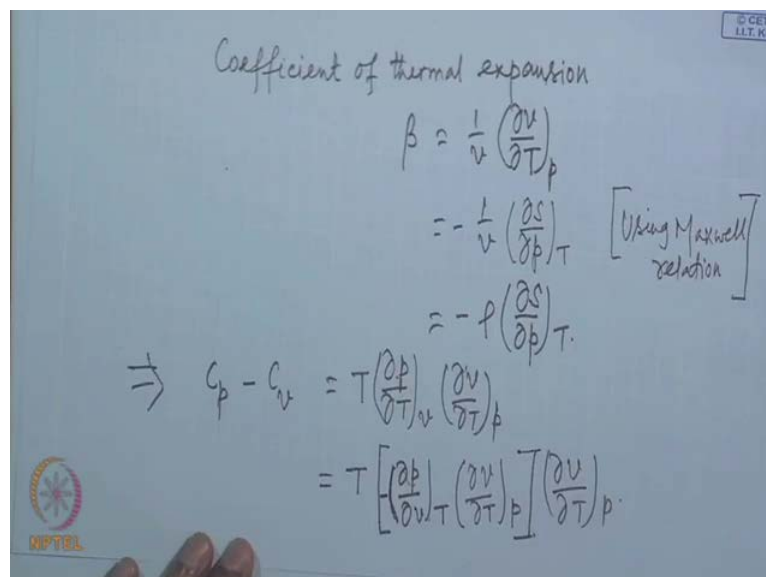 © CET
I.I.T. K
Coefficient of thermal expansion
β = 1/v (∂v/∂T)_p
= - 1/v (∂s/∂p)_T [Using Maxwell relation]
= - ρ (∂s/∂p)_T.
⇒ C_p - C_v = T (∂p/∂T)_v (∂v/∂T)_p
= T [-(∂p/∂v)_T (∂v/∂T)_p] (∂v/∂T)_p.
NPTEL